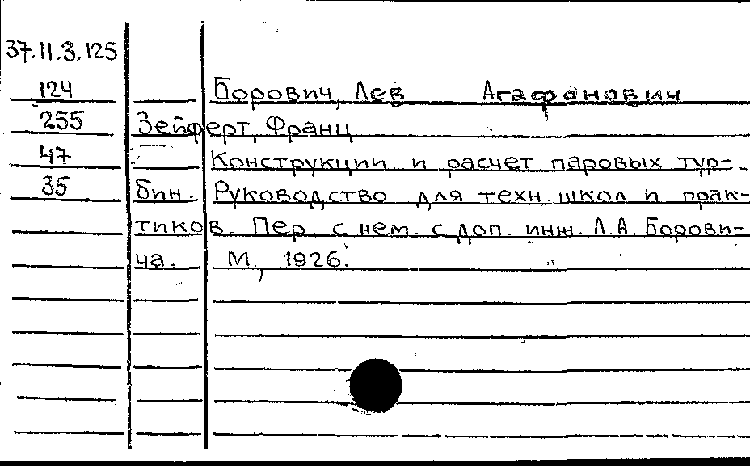 37.11.3.125
124 Борович, Лев Агафанович
255 Зейферт, Франц
47 Конструкции и расчет паровых тур-
35 бин. Руководство для техн. школ и прак-
тиков. Пер. с нем. с доп. инж. Л.А. Борови-
ча. М., 1926.